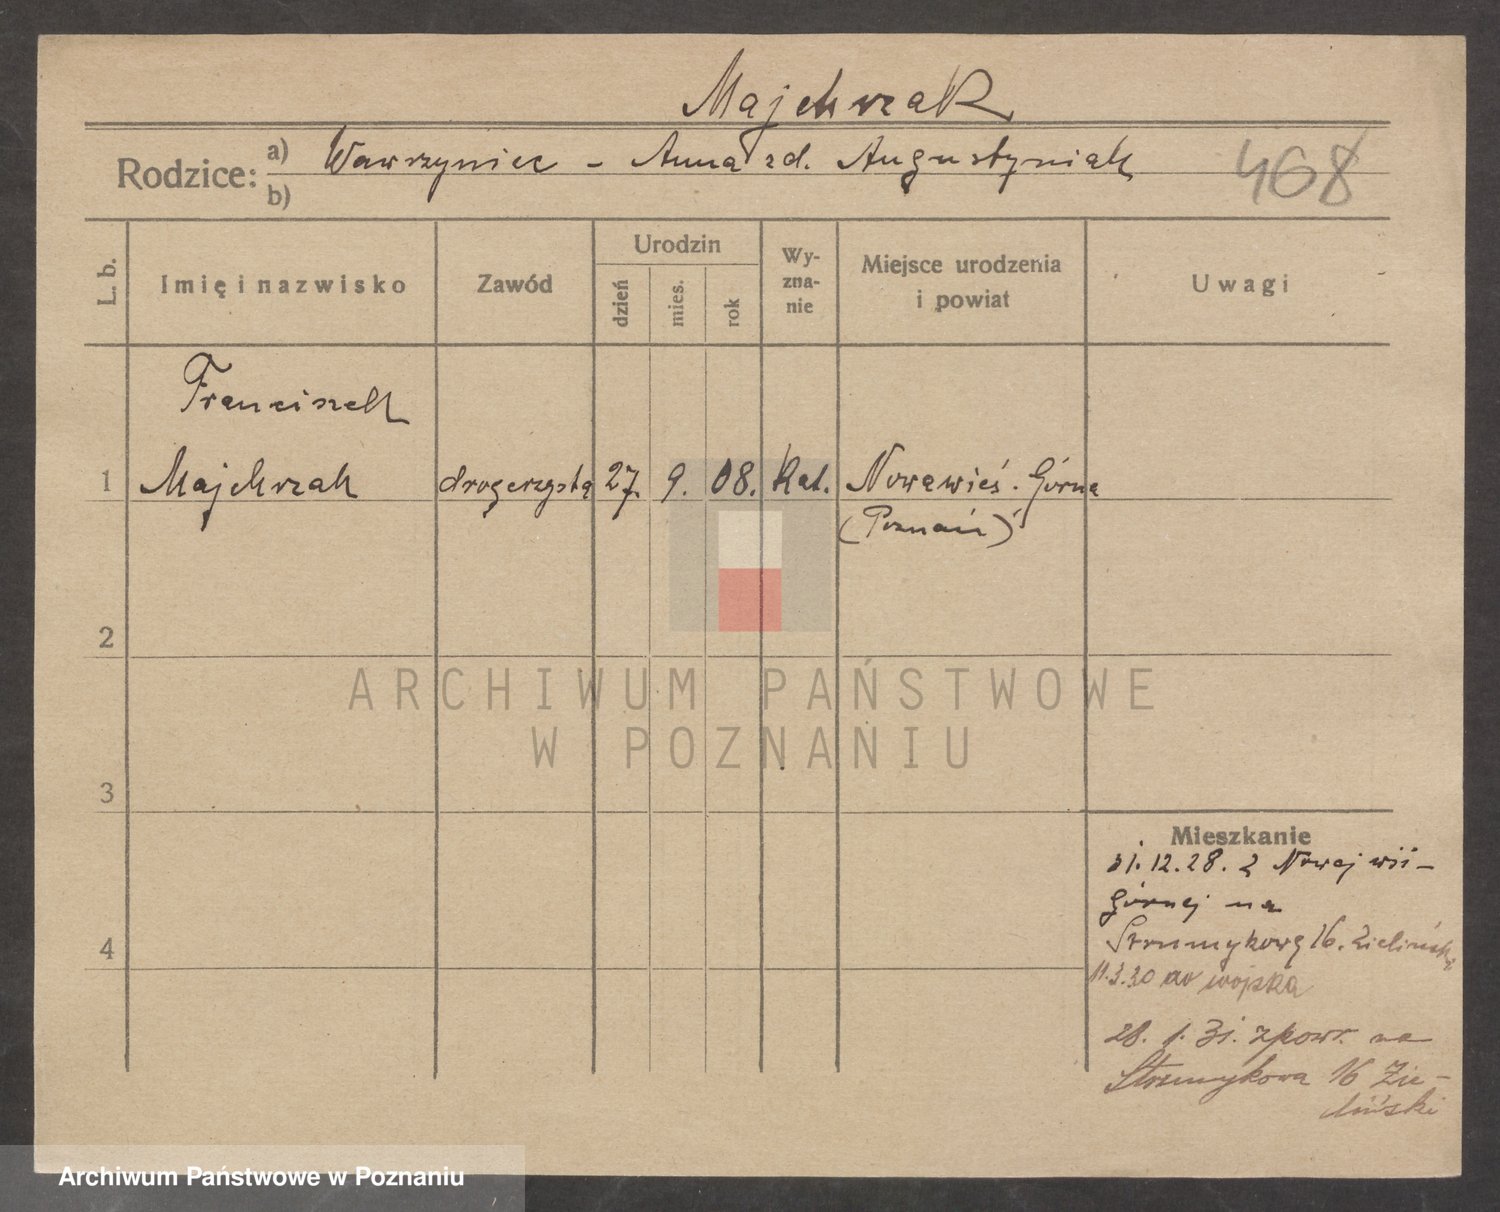 Majchrzak
Rodzice: a) Wawrzyniec - Anna zd. Augustyniak
b)
468
L. b.
Imię i nazwisko
Zawód
Urodzin
dzień
mies.
rok
Wy-
zna-
nie
Miejsce urodzenia
i powiat
Uwagi
Franciszek
1 Majchrzak drogerzysta 27. 9. 08. Kat. Nowawieś. Górna
(Poznań)
2
3
4
Mieszkanie
31.12.28. z Nowej wsi-
Górnej na
Strumykową 16. Zielińska
11.3.30 do wojska
28. 1. 31. zpowr. na
Strumykowa 16 Zie-
liński
ARCHIWUM PAŃSTWOWE
W POZNANIU
Archiwum Państwowe w Poznaniu